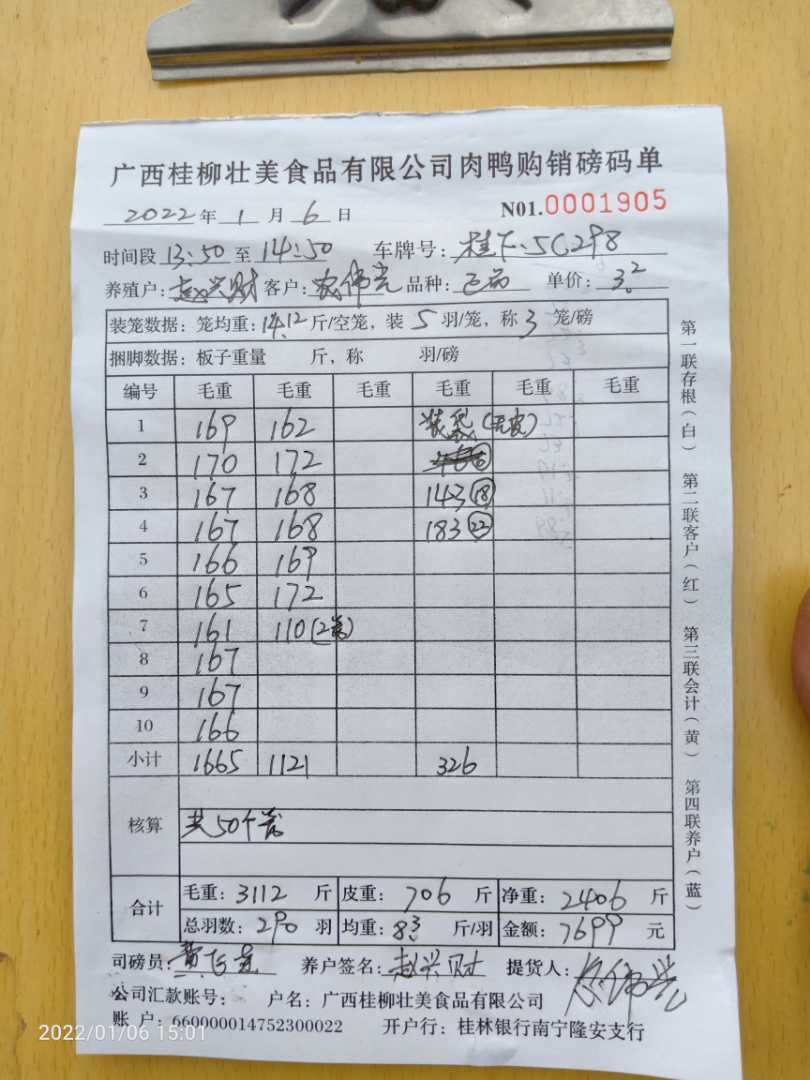 广西桂柳壮美食品有限公司肉鸭购销磅码单
2022年1月6日 N01.0001905
时间段13:50至14:50 车牌号:桂F·5C298
养殖户:赵兴财 客户:农伟光 品种:正品 单价:3.2
装笼数据:笼均重:14.12斤/空笼,装5羽/笼,称3笼/磅
捆脚数据:板子重量 斤,称 羽/磅
编号 毛重 毛重 毛重 毛重 毛重 毛重
1 169 162 装袋(无皮)
2 170 172
3 167 168 143(18)
4 167 168 183(22)
5 166 169
6 165 172
7 161 110(2笼)
8 167
9 167
10 166
小计 1665 1121 326
核算 共50个笼
合计 毛重:3112斤 皮重:706斤 净重:2406斤
总羽数:290羽 均重:8.3斤/羽 金额:7699元
司磅员: 养户签名:赵兴财 提货人:
公司汇款账号: 户名:广西桂柳壮美食品有限公司
账户:660000014752300022 开户行:桂林银行南宁隆安支行
第一联存根(白) 第二联客户(红) 第三联会计(黄) 第四联养户(蓝)
2022/01/06 15:01